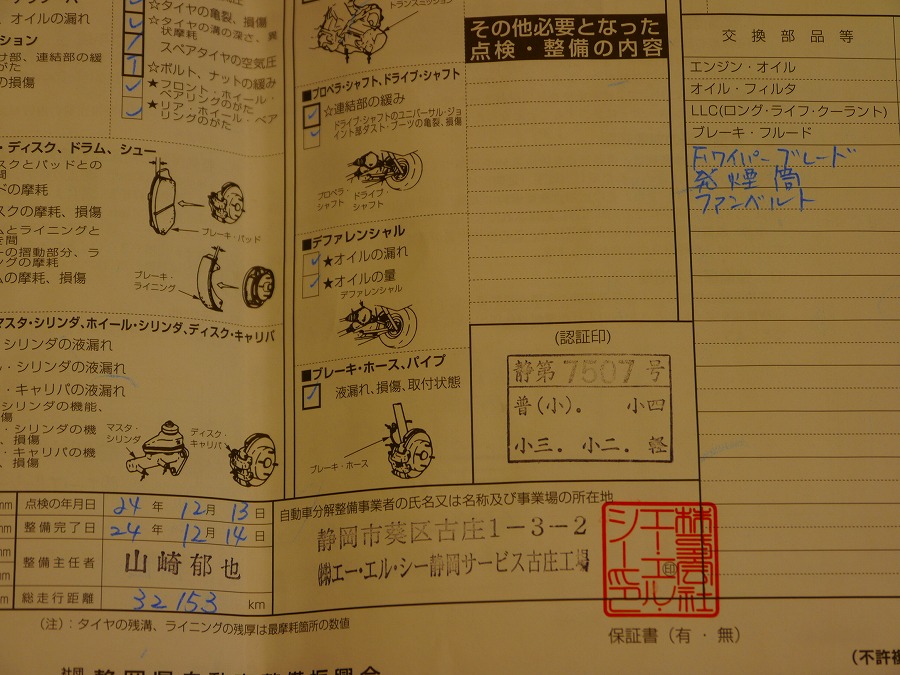 、オイルの漏れ
☆タイヤの亀裂、損傷
☆タイヤの溝の深さ、異状摩耗
スペアタイヤの空気圧
☆ボルト、ナットの緩み
★フロント・ホイール・ベアリングのがた
★リア・ホイール・ベアリングのがた
・ディスク、ドラム、シュー
スクとパッドとの
ドの摩耗
スクの摩耗、損傷
ムとライニングと
ーの摺動部分、ラ
ングの摩耗
ムの摩耗、損傷
ブレーキ・パッド
ブレーキ・ライニング
マスタ・シリンダ、ホイール・シリンダ、ディスク・キャリパ
シリンダの液漏れ
・シリンダの液漏れ
・キャリパの液漏れ
シリンダの機能、
・シリンダの機
、損傷
・キャリパの機
、損傷
マスタ・シリンダ
ディスク・キャリパ
トランスミッション
■プロペラ・シャフト、ドライブ・シャフト
☆連結部の緩み
ドライブ・シャフトのユニバーサル・ジョイント部ダスト・ブーツの亀裂、損傷
プロペラ・シャフト
ドライブ・シャフト
■デファレンシャル
★オイルの漏れ
★オイルの量
デファレンシャル
■ブレーキ・ホース、パイプ
液漏れ、損傷、取付状態
ブレーキ・ホース
その他必要となった
点検・整備の内容
(認証印)
静第7507号
普(小). 小四
小三. 小二. 軽
交換部品等
エンジン・オイル
オイル・フィルタ
LLC(ロング・ライフ・クーラント)
ブレーキ・フルード
Fワイパーブレード
発煙筒
ファンベルト
点検の年月日 24年 12月 13日
整備完了日 24年 12月 14日
整備主任者 山崎郁也
総走行距離 32153 km
自動車分解整備事業者の氏名又は名称及び事業場の所在地
静岡市葵区古庄1-3-2
㈱エー・エル・シー静岡サービス古庄工場
株式会社エー・エル・シー印
(注):タイヤの残溝、ライニングの残厚は最摩耗箇所の数値
保証書(有・無)
(不許複